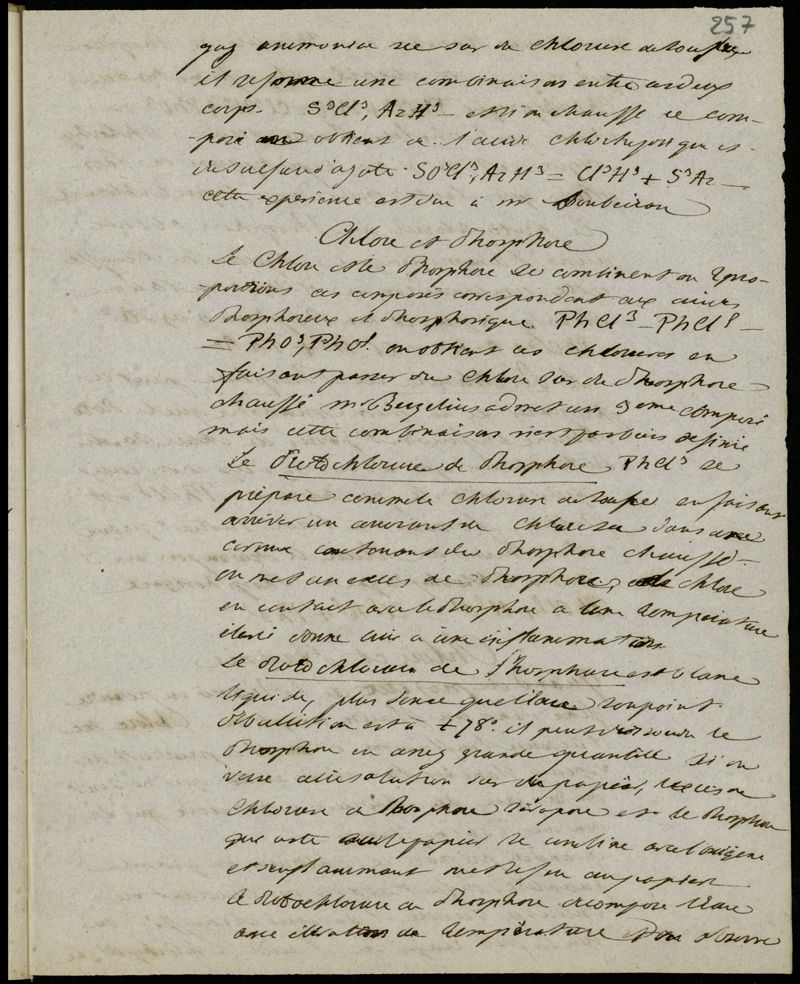 257
gaz ammoniac sec sur du chlorure de soufre
il se forme une combinaison entre ces deux
corps. S³Cl³, AzH³ – et si on chauffe ce com-
-posé on obtient de l'acide chlorhydrique et
du sulfure d'azote S³Cl³, AzH³ = Cl³H³ + S³Az –
cette expérience est due à mr Soubeiran
Chlore et Phosphore
Le Chlore et le Phosphore se combinent en 2 pro-
-portions ces composés correspondent aux acides
Phosphoreux et Phosphorique PhCl³ – PhCl⁵ –
= PhO³, PhO⁵. on obtient ces chlorures en
faisant passer du chlore sur du Phosphore
chauffé mr Berzelius admet un 3eme composé
mais cette combinaison n'est pas bien définie
Le Protochlorure de Phosphore PhCl³ se
prépare comme le chlorure de soufre en faisant
arriver un courant de chlore sec dans une
cornue contenant du Phosphore chauffé –
on met un excès de Phosphore, le chlore
en contact avec le Phosphore a une température
élevé donne lieu a une inflammation
Le Protochlorure de Phosphore est blanc
liquide, plus dense que l'eau son point
d'ébullition est à +78° il peut dissoudre le
Phosphore en assez grande quantité si on
verse cette solution sur du papier, l'excès de
chlorure de Phosphore s'évapore et le Phosphore
qui reste sur le papier se combine avec l'oxigène
et s'enflammant met le feu au papier
le Protochlorure de Phosphore décompose l'eau
avec élévation de température